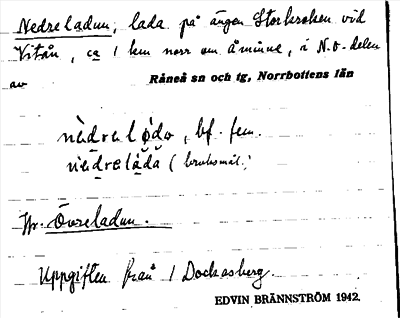 Nedreladun, lada på ängen Storkroken vid
Vitån, ca 1 km norr om åminne, i N.O-delen
av Råneå sn och tg, Norrbottens län
bf. fem.
(bruksmål.)
Jfr. Övreladun.
Uppgiften från / Dockasberg.
EDVIN BRÄNNSTRÖM 1942.